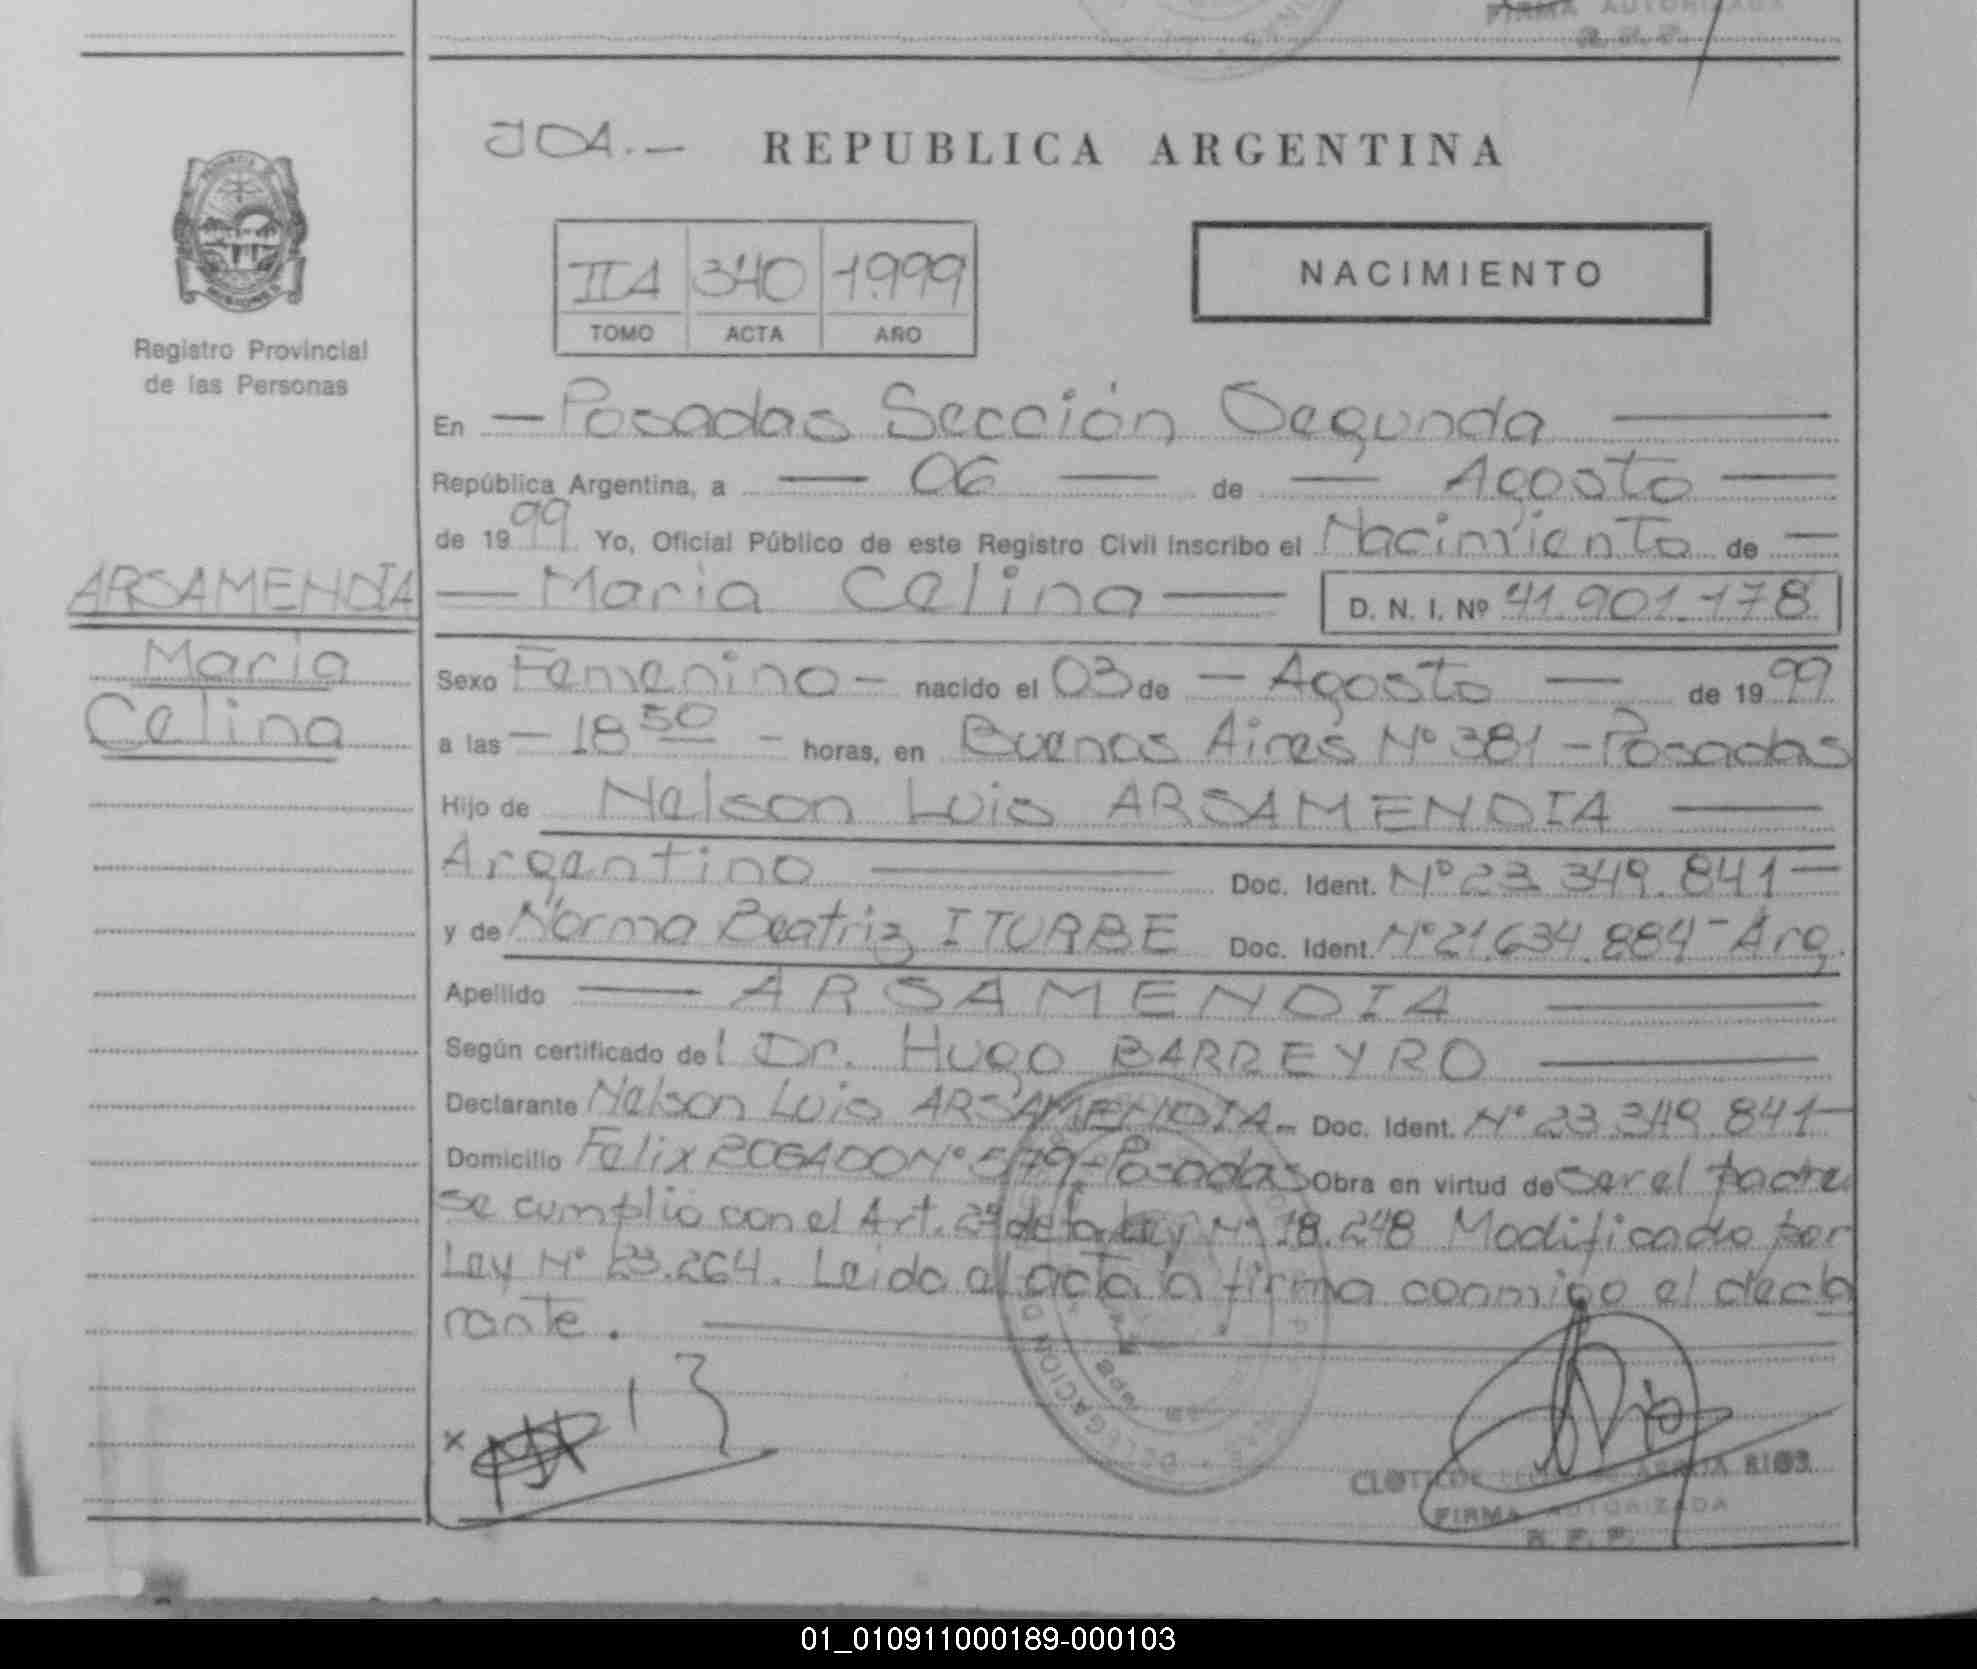 FIRMA AUTORIZADA
JOA.- REPUBLICA ARGENTINA
IIA 340 1999
TOMO ACTA AÑO
NACIMIENTO
Registro Provincial
de las Personas
En - Posadas Sección Segunda
República Argentina, a 06 de Agosto
de 1999 Yo, Oficial Público de este Registro Civil inscribo el Nacimiento de
ARSAMENDIA
Maria
Celina
Maria Celina D. N. I. Nº 41.901.178
Sexo Femenino - nacido el 03 de - Agosto - de 1999
a las - 18 50 - horas, en Buenos Aires Nº 381 - Posadas
Hijo de Nelson Luis ARSAMENDIA
Argentino Doc. Ident. Nº 23.349.841-
y de Norma Beatriz ITURBE Doc. Ident. Nº 21.634.884- Arg.
Apellido ARSAMENDIA
Según certificado del Dr. Hugo BARREYRO
Declarante Nelson Luis ARSAMENDIA- Doc. Ident. Nº 23.349.841-
Domicilio Felix BOGADO Nº 5179 - Posadas Obra en virtud de ser el padre
se cumplio con el Art. 2º de la Ley Nº 18.248 Modificado por
Ley Nº 23.264. Leida el acta la firma conmigo el decla
rante.
x
DELEGACION
RIOS
FIRMA AUTORIZADA
R. P. P.
01_010911000189-000103